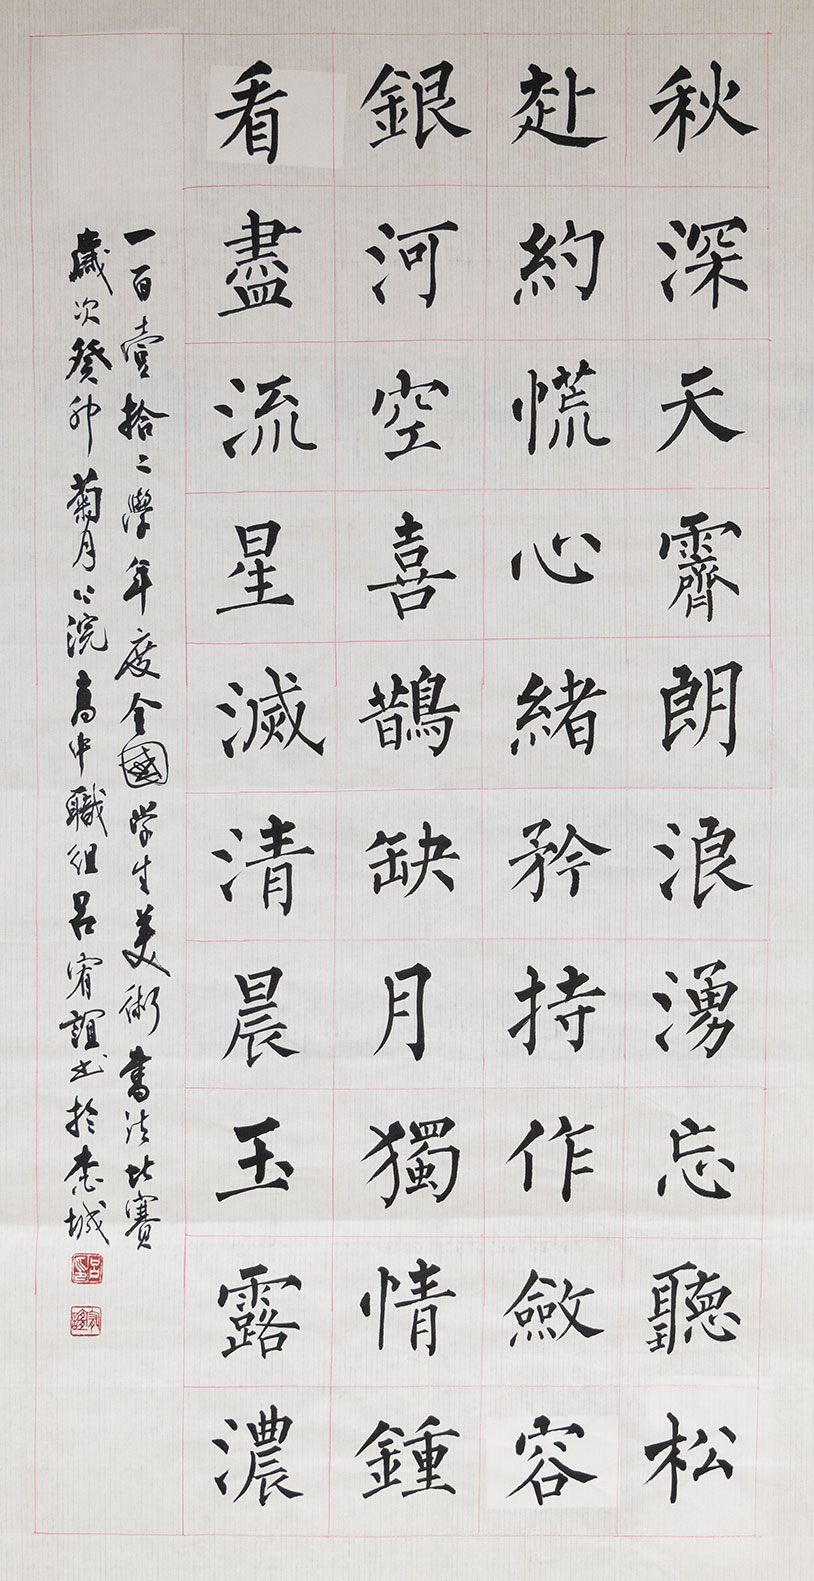 秋深天霽朗浪湧忘聽松
赴約慌心緒矜持作斂容
銀河空喜鵲缺月獨情鍾
看盡流星滅清晨玉露濃
一百壹拾二學年度全國學生美術書法比賽
歲次癸卯菊月 高中職組呂宥誼書於 城